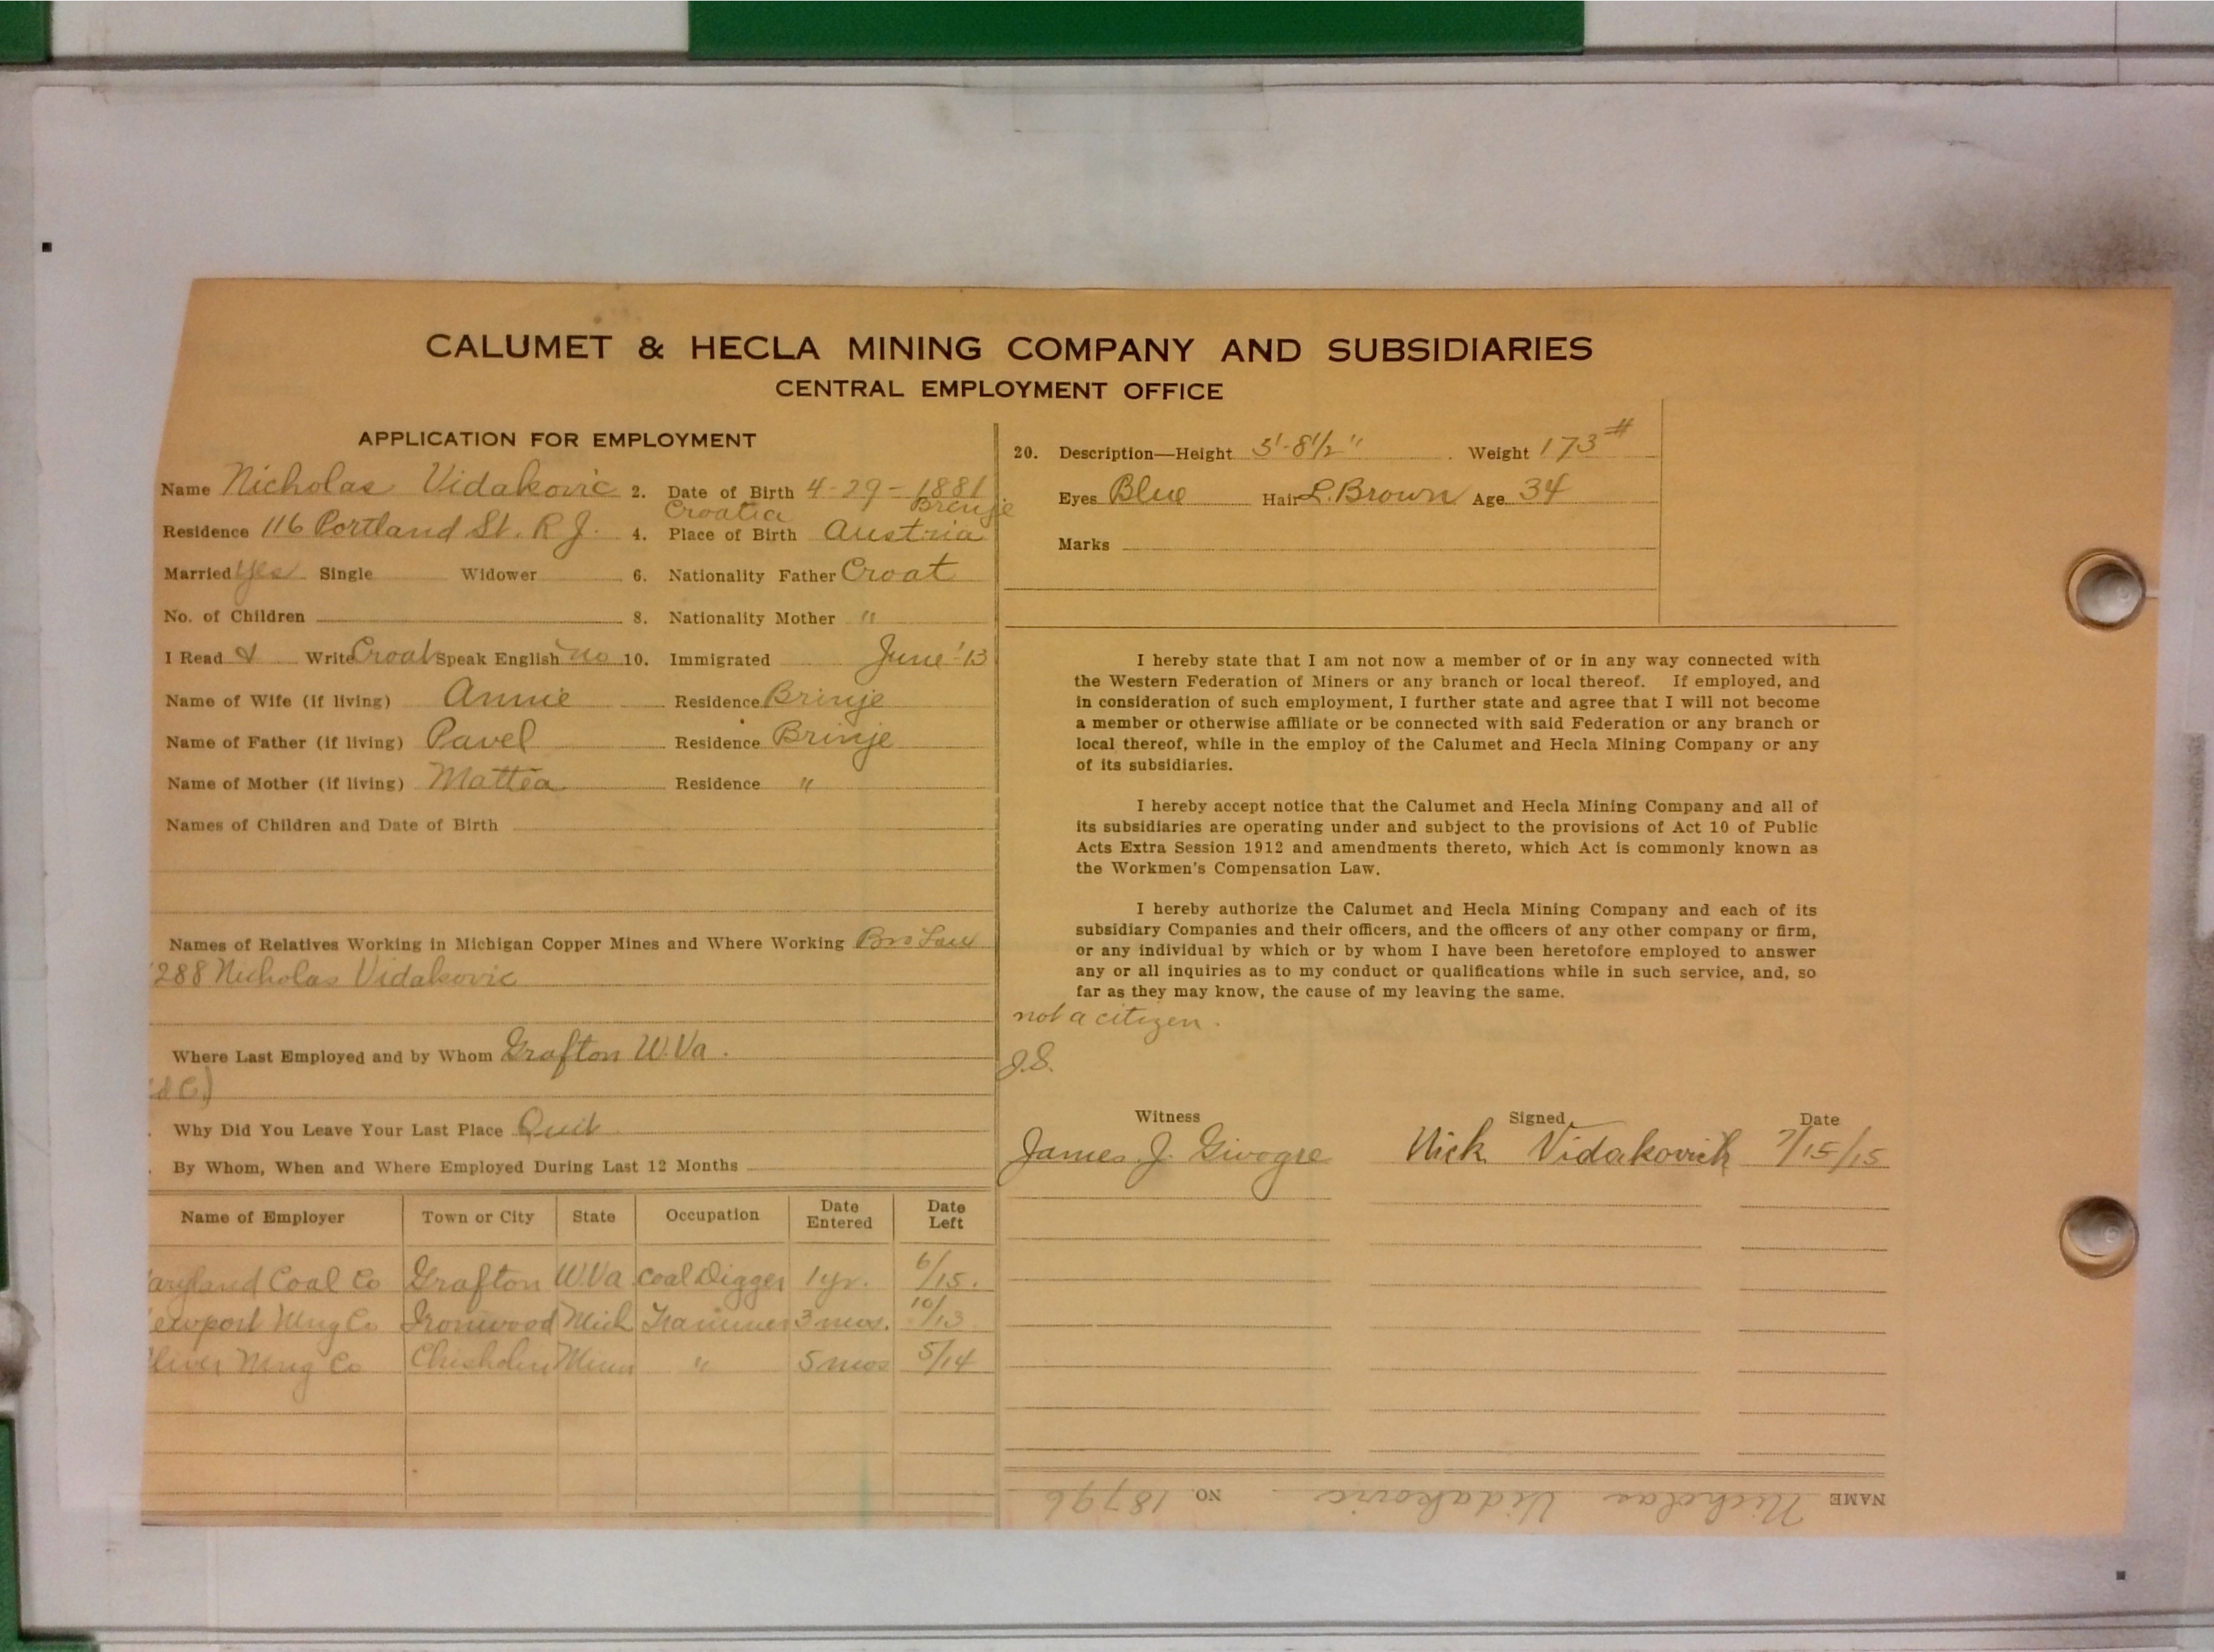 CALUMET & HECLA MINING COMPANY AND SUBSIDIARIES
CENTRAL EMPLOYMENT OFFICE
APPLICATION FOR EMPLOYMENT
Name Nicholas Vidakovic 2. Date of Birth 4-29-1881
Croatia Brinje
Residence 116 Portland St. R J. 4. Place of Birth Austria
Married Yes Single Widower 6. Nationality Father Croat
No. of Children 8. Nationality Mother "
I Read & Write Croat Speak English no 10. Immigrated June '13
Name of Wife (if living) Annie Residence Brinje
Name of Father (if living) Pavel Residence Brinje
Name of Mother (if living) Mattea Residence "
Names of Children and Date of Birth
Names of Relatives Working in Michigan Copper Mines and Where Working Bro
288 Nicholas Vidakovic
Where Last Employed and by Whom Grafton W.Va.
Why Did You Leave Your Last Place Quit
By Whom, When and Where Employed During Last 12 Months
Name of Employer Town or City State Occupation Date Entered Date Left
aryland Coal Co Grafton W.Va Coal Digger 1 yr. 6/15.
ewport Mng Co Ironwood Mich Trammer 3 mos. 10/13
liver Mng Co Chisholm Minn " 5 mos 5/14
20. Description—Height 5'-8½" Weight 173#
Eyes Blue Hair L. Brown Age 34
Marks
I hereby state that I am not now a member of or in any way connected with
the Western Federation of Miners or any branch or local thereof. If employed, and
in consideration of such employment, I further state and agree that I will not become
a member or otherwise affiliate or be connected with said Federation or any branch or
local thereof, while in the employ of the Calumet and Hecla Mining Company or any
of its subsidiaries.
I hereby accept notice that the Calumet and Hecla Mining Company and all of
its subsidiaries are operating under and subject to the provisions of Act 10 of Public
Acts Extra Session 1912 and amendments thereto, which Act is commonly known as
the Workmen's Compensation Law.
I hereby authorize the Calumet and Hecla Mining Company and each of its
subsidiary Companies and their officers, and the officers of any other company or firm,
or any individual by which or by whom I have been heretofore employed to answer
any or all inquiries as to my conduct or qualifications while in such service, and, so
far as they may know, the cause of my leaving the same.
not a citizen.
J.S.
Witness Signed Date
James J. Givogre Nick Vidakovich 7/15/15
NAME Nicholas Vidakovic NO. 18796